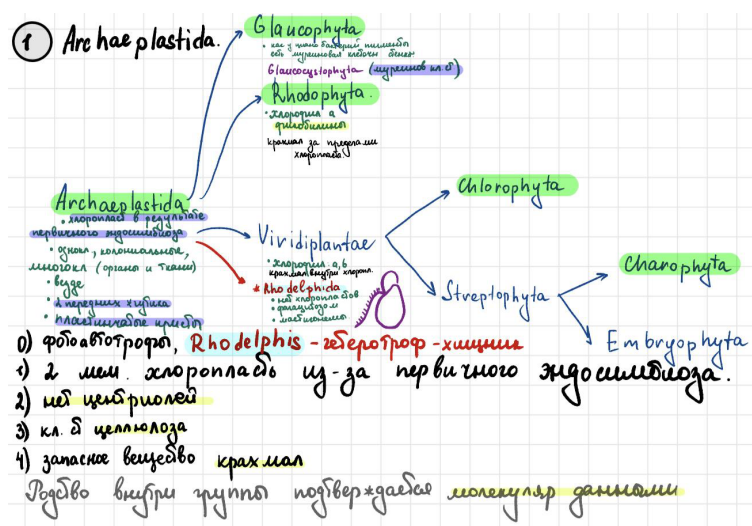 1 Archaeplastida.
Glaucophyta
• как у цианобактерий пигменты
есть муреиновая клеточн стенка
Glaucocystophyta (муреинов кл. ст)
Rhodophyta.
• хлорофил а
фикобилины
крахмал за пределами
хлоропласта
Archaeplastida
• хлоропласт в результате
первичного эндосимбиоза
• однокл, колониальные,
многокл (органы и ткани)
• везде
• 2 передних жгутика
• пластинчатые кристы
Viridiplantae
• хлорофил a, b
крахмал внутри хлоропл.
* Rhodelphida
• нет хлоропластов
• фагоцитоз
• мастигонемы
Chlorophyta
Streptophyta
Charophyta
Embryophyta
0) фотоавтотрофы, Rhodelphis - гетеротроф - хищник
1) 2 мем. хлоропласть из-за первичного эндосимбиоза.
2) нет центриолей
3) кл. ст целлюлоза
4) запасное вещество крахмал
Родство внутри группы подтверждается молекуляр данными